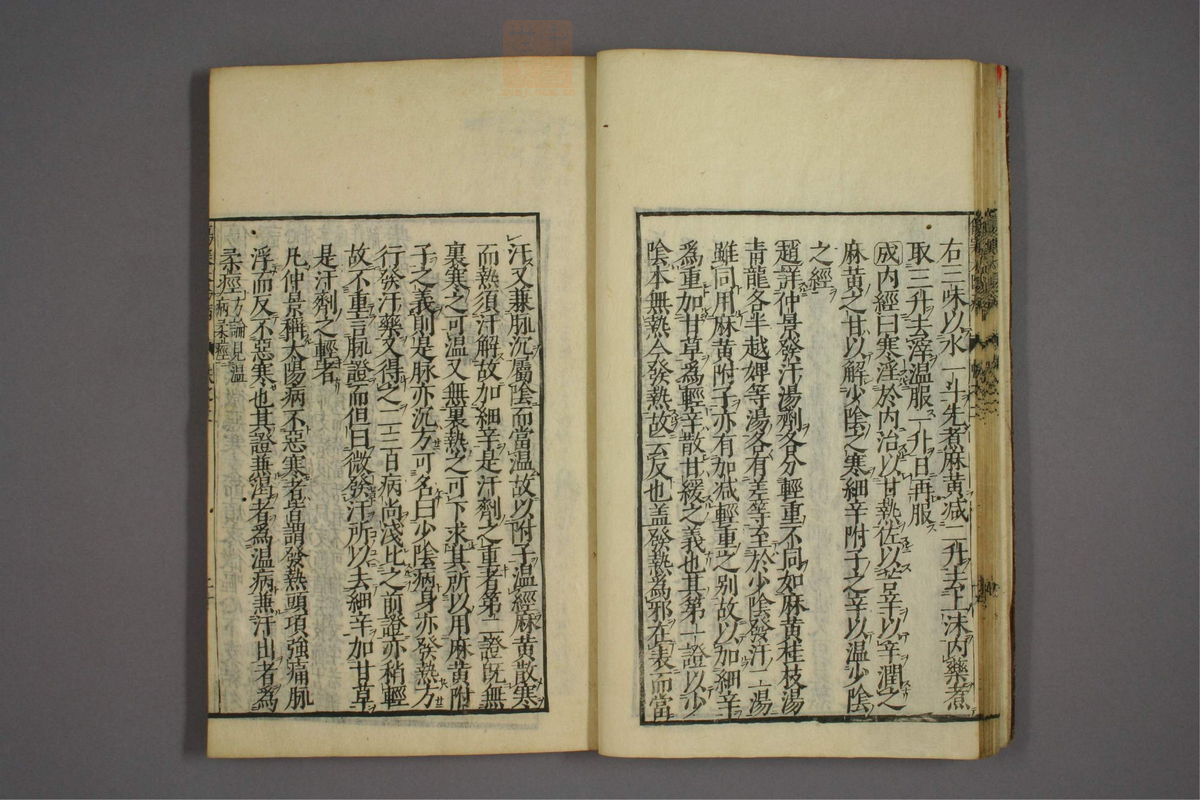 右三味以水一斗先煮麻黄减二升去上沫内藥煮
取三升去滓温服一升日再服
成内經曰寒淫於内治以甘熱佐以苦辛以辛潤之
麻黄之甘以解少陰之寒細辛附子之辛以温少陰
之經
趙詳仲景發汗湯劑各分輕重不同如麻黄桂枝湯
青龍各半越婢等湯各有差等至於少陰發汗二湯
雖同用麻黄附子亦有加减輕重之别故以加細辛
爲重加甘草爲輕辛散甘緩之義也其第一證以少
陰本無熱今發熱故云反也盖發熱爲邪在表而當
汗又兼脉沉屬陰而當温故以附子温經麻黄散寒
而熱須汗解故加細辛是汗劑之重者第二證既無
裏寒之可温又無裏熱之可下求其所以用麻黄附
子之義則是脉亦沉方可名曰少陰病身亦發熱方
行發汗藥又得之二三日病尚淺比之前證亦稍輕
故不重言脉證而但曰微發汗所以去細辛加甘草
是汗劑之輕者
凡仲景稱太陽病不惡寒者皆謂發熱頭項強痛脉
浮而反不惡寒也其證兼渴者爲温病兼汗出者爲
柔痓方論見温病柔痓